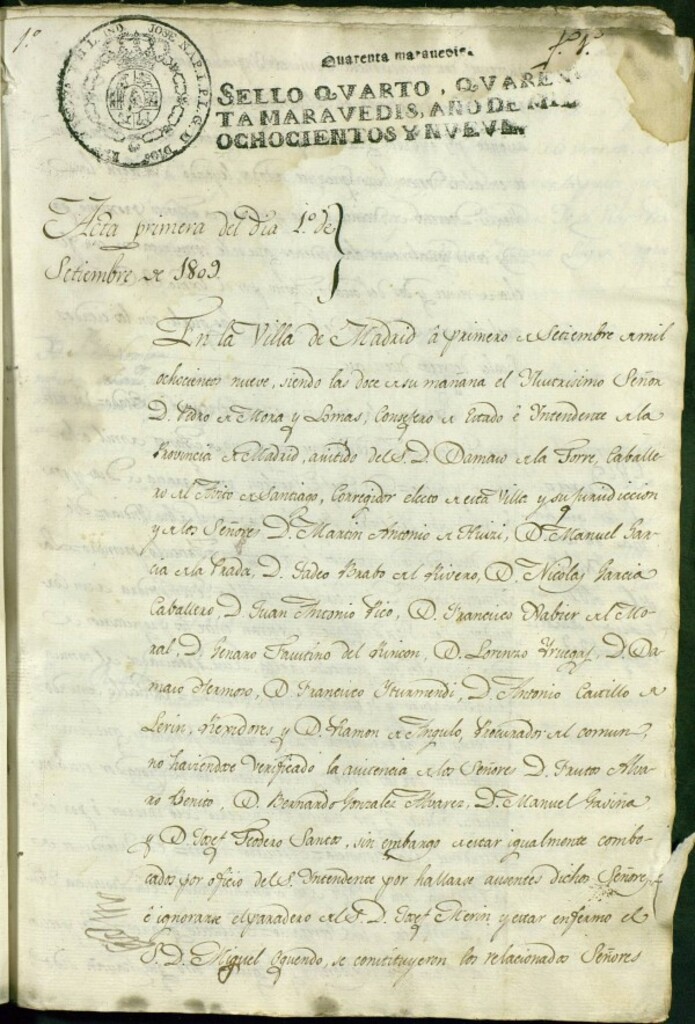 1.º
Quarenta maravedis.
f. 1.º
SELLO QVARTO, QVAREN
TA MARAVEDIS, AÑO DE MIL
OCHOCIENTOS Y NVEVE.
Acta primera del dia 1.º de
Setiembre de 1809.
En la Villa de Madrid á primero de Setiembre de mil
ochocientos nueve, siendo las doce de su mañana el Ylustrisimo Señor
D. Pedro de Mora y Lomas, Consejero de Estado é Yntendente de la
Provincia de Madrid, asistido del S. D. Damaso de la Torre, Caballe-
ro del Avito de Santiago, Corregidor electo de esta Villa y su jurisdiccion
y de los Señores D. Martin Antonio de Huizi, D. Manuel Gar-
cia de la Prada, D. Tadeo Brabo del Rivero, D. Nicolas Garcia
Caballero, D. Juan Antonio Pico, D. Francisco Xabier del Mo-
ral, D. Genaro Faustino del Rincon, D. Lorenzo Yruegas, D. Da-
maso Hermoso, D. Francisco Yturmendi, D. Antonio Castillo de
Lerin, Rexidores y D. Ramon de Angulo, Procurador del comun,
no haviendose verificado la asistencia de los Señores D. Frutos Alva-
ro Benito, D. Bernardo Gonzalez Alvarez, D. Manuel Gaviña
y D. Josef Teodoro Santos, sin embargo de estar igualmente combo-
cados por oficio del S. Yntendente por hallarse ausentes dichos Señores,
é ignorarse el paradero del S. D. Josef Merin y estar enfermo el
S. D. Miguel Oquendo, se constituyeron los relacionados Señores